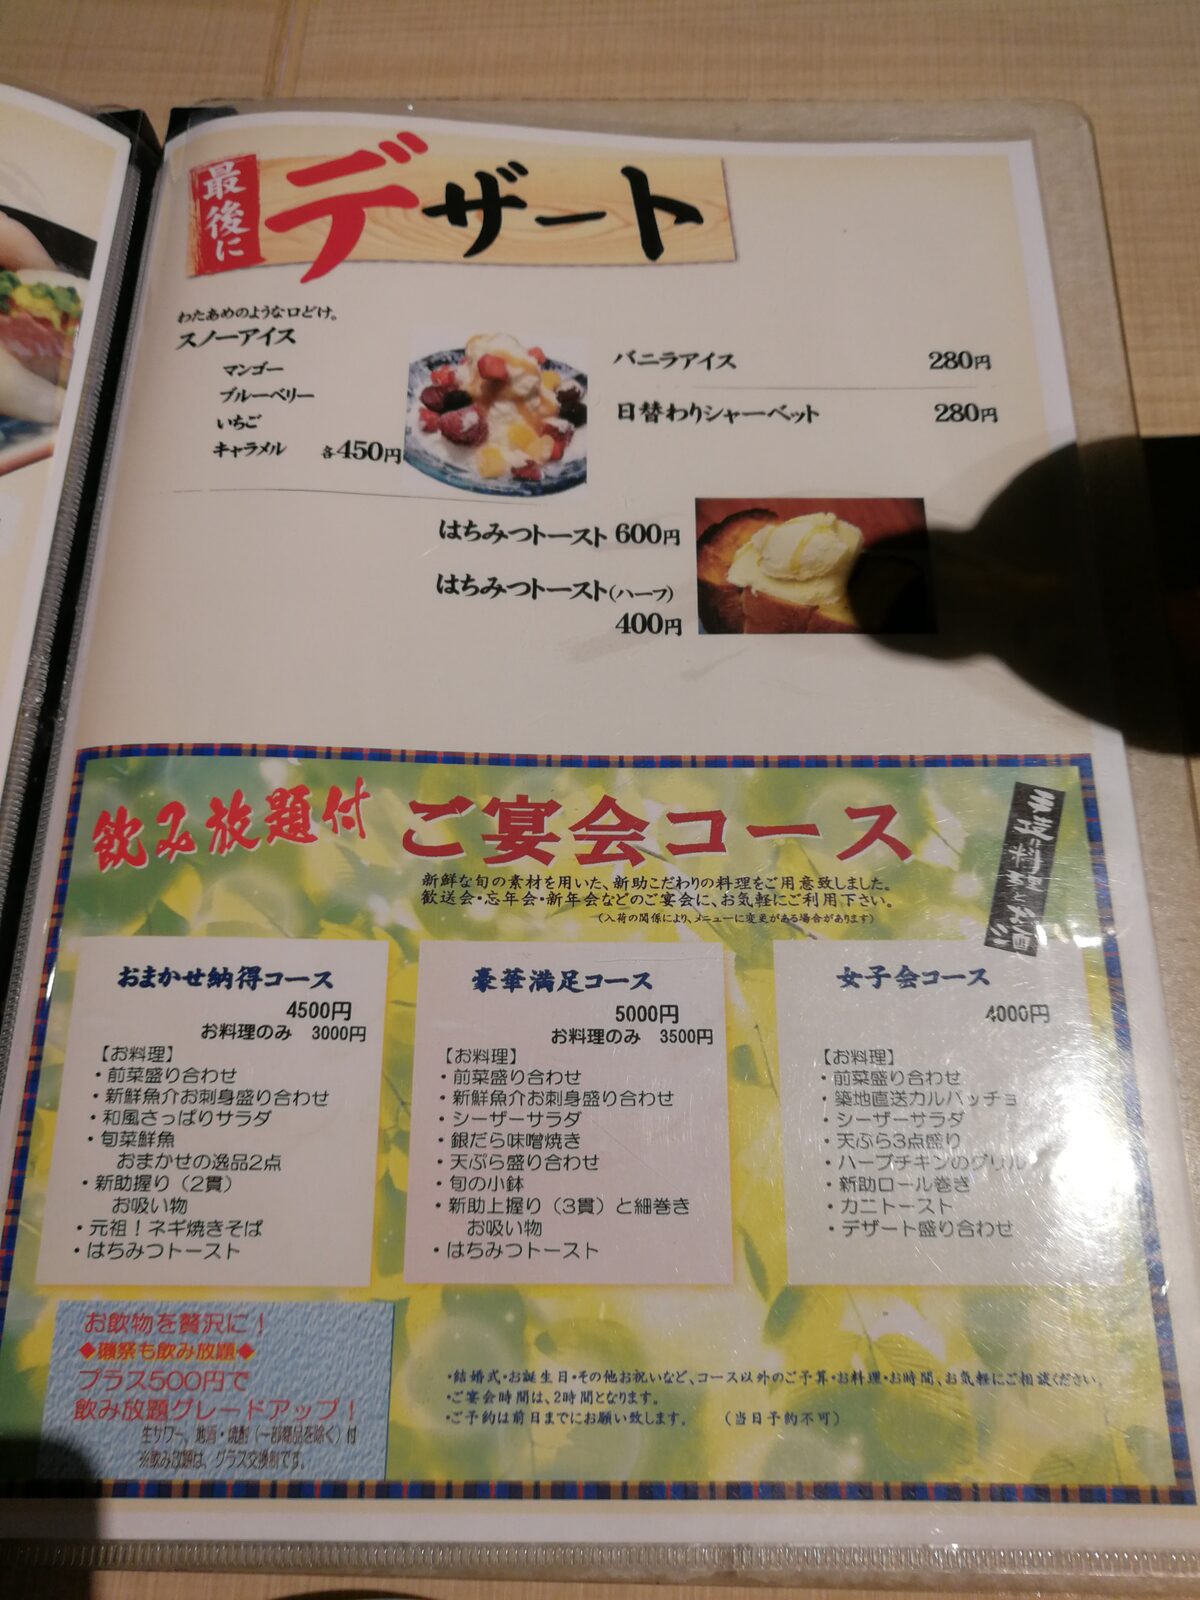 最後に
デザート
わたあめのような口どけ。
スノーアイス
マンゴー
ブルーベリー
いちご
キャラメル 各450円
バニラアイス 280円
日替わりシャーベット 280円
はちみつトースト 600円
はちみつトースト(ハーフ)
400円
飲み放題付 ご宴会コース
新鮮な旬の素材を用いた、新助こだわりの料理をご用意致しました。
歓送会・忘年会・新年会などのご宴会に、お気軽にご利用下さい。
(入荷の関係により、メニューに変更がある場合があります)
おまかせ納得コース
4500円
お料理のみ 3000円
【お料理】
・前菜盛り合わせ
・新鮮魚介お刺身盛り合わせ
・和風さっぱりサラダ
・旬菜鮮魚
おまかせの逸品2点
・新助握り(2貫)
お吸い物
・元祖!ネギ焼きそば
・はちみつトースト
豪華満足コース
5000円
お料理のみ 3500円
【お料理】
・前菜盛り合わせ
・新鮮魚介お刺身盛り合わせ
・シーザーサラダ
・銀だら味噌焼き
・天ぷら盛り合わせ
・旬の小鉢
・新助上握り(3貫)と細巻き
お吸い物
・はちみつトースト
女子会コース
4000円
【お料理】
・前菜盛り合わせ
・築地直送カルパッチョ
・シーザーサラダ
・天ぷら3点盛り
・ハーブチキンのグリル
・新助ロール巻き
・カニトースト
・デザート盛り合わせ
お飲物を贅沢に!
◆獺祭も飲み放題◆
プラス500円で
飲み放題グレードアップ!
生サワー、地酒・焼酎(一部商品を除く)付
※飲み放題は、グラス交換制です。
・結婚式・お誕生日・その他お祝いなど、コース以外のご予算・お料理・お時間、お気軽にご相談ください。
・ご宴会時間は、2時間となります。
・ご予約は前日までにお願い致します。 (当日予約不可)